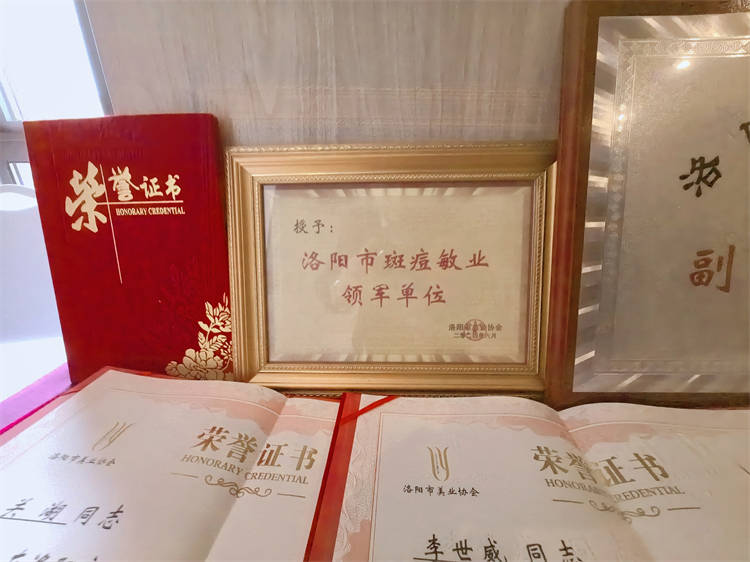 荣誉证书
HONORARY CREDENTIAL
授予：
洛阳市斑痘敏业
领军单位
洛阳市美业协会
副
洛阳市美业协会
荣誉证书
HONORARY CREDENTIAL
同志
洛阳市美业协会
荣誉证书
HONORARY CREDENTIAL
李世威 同志